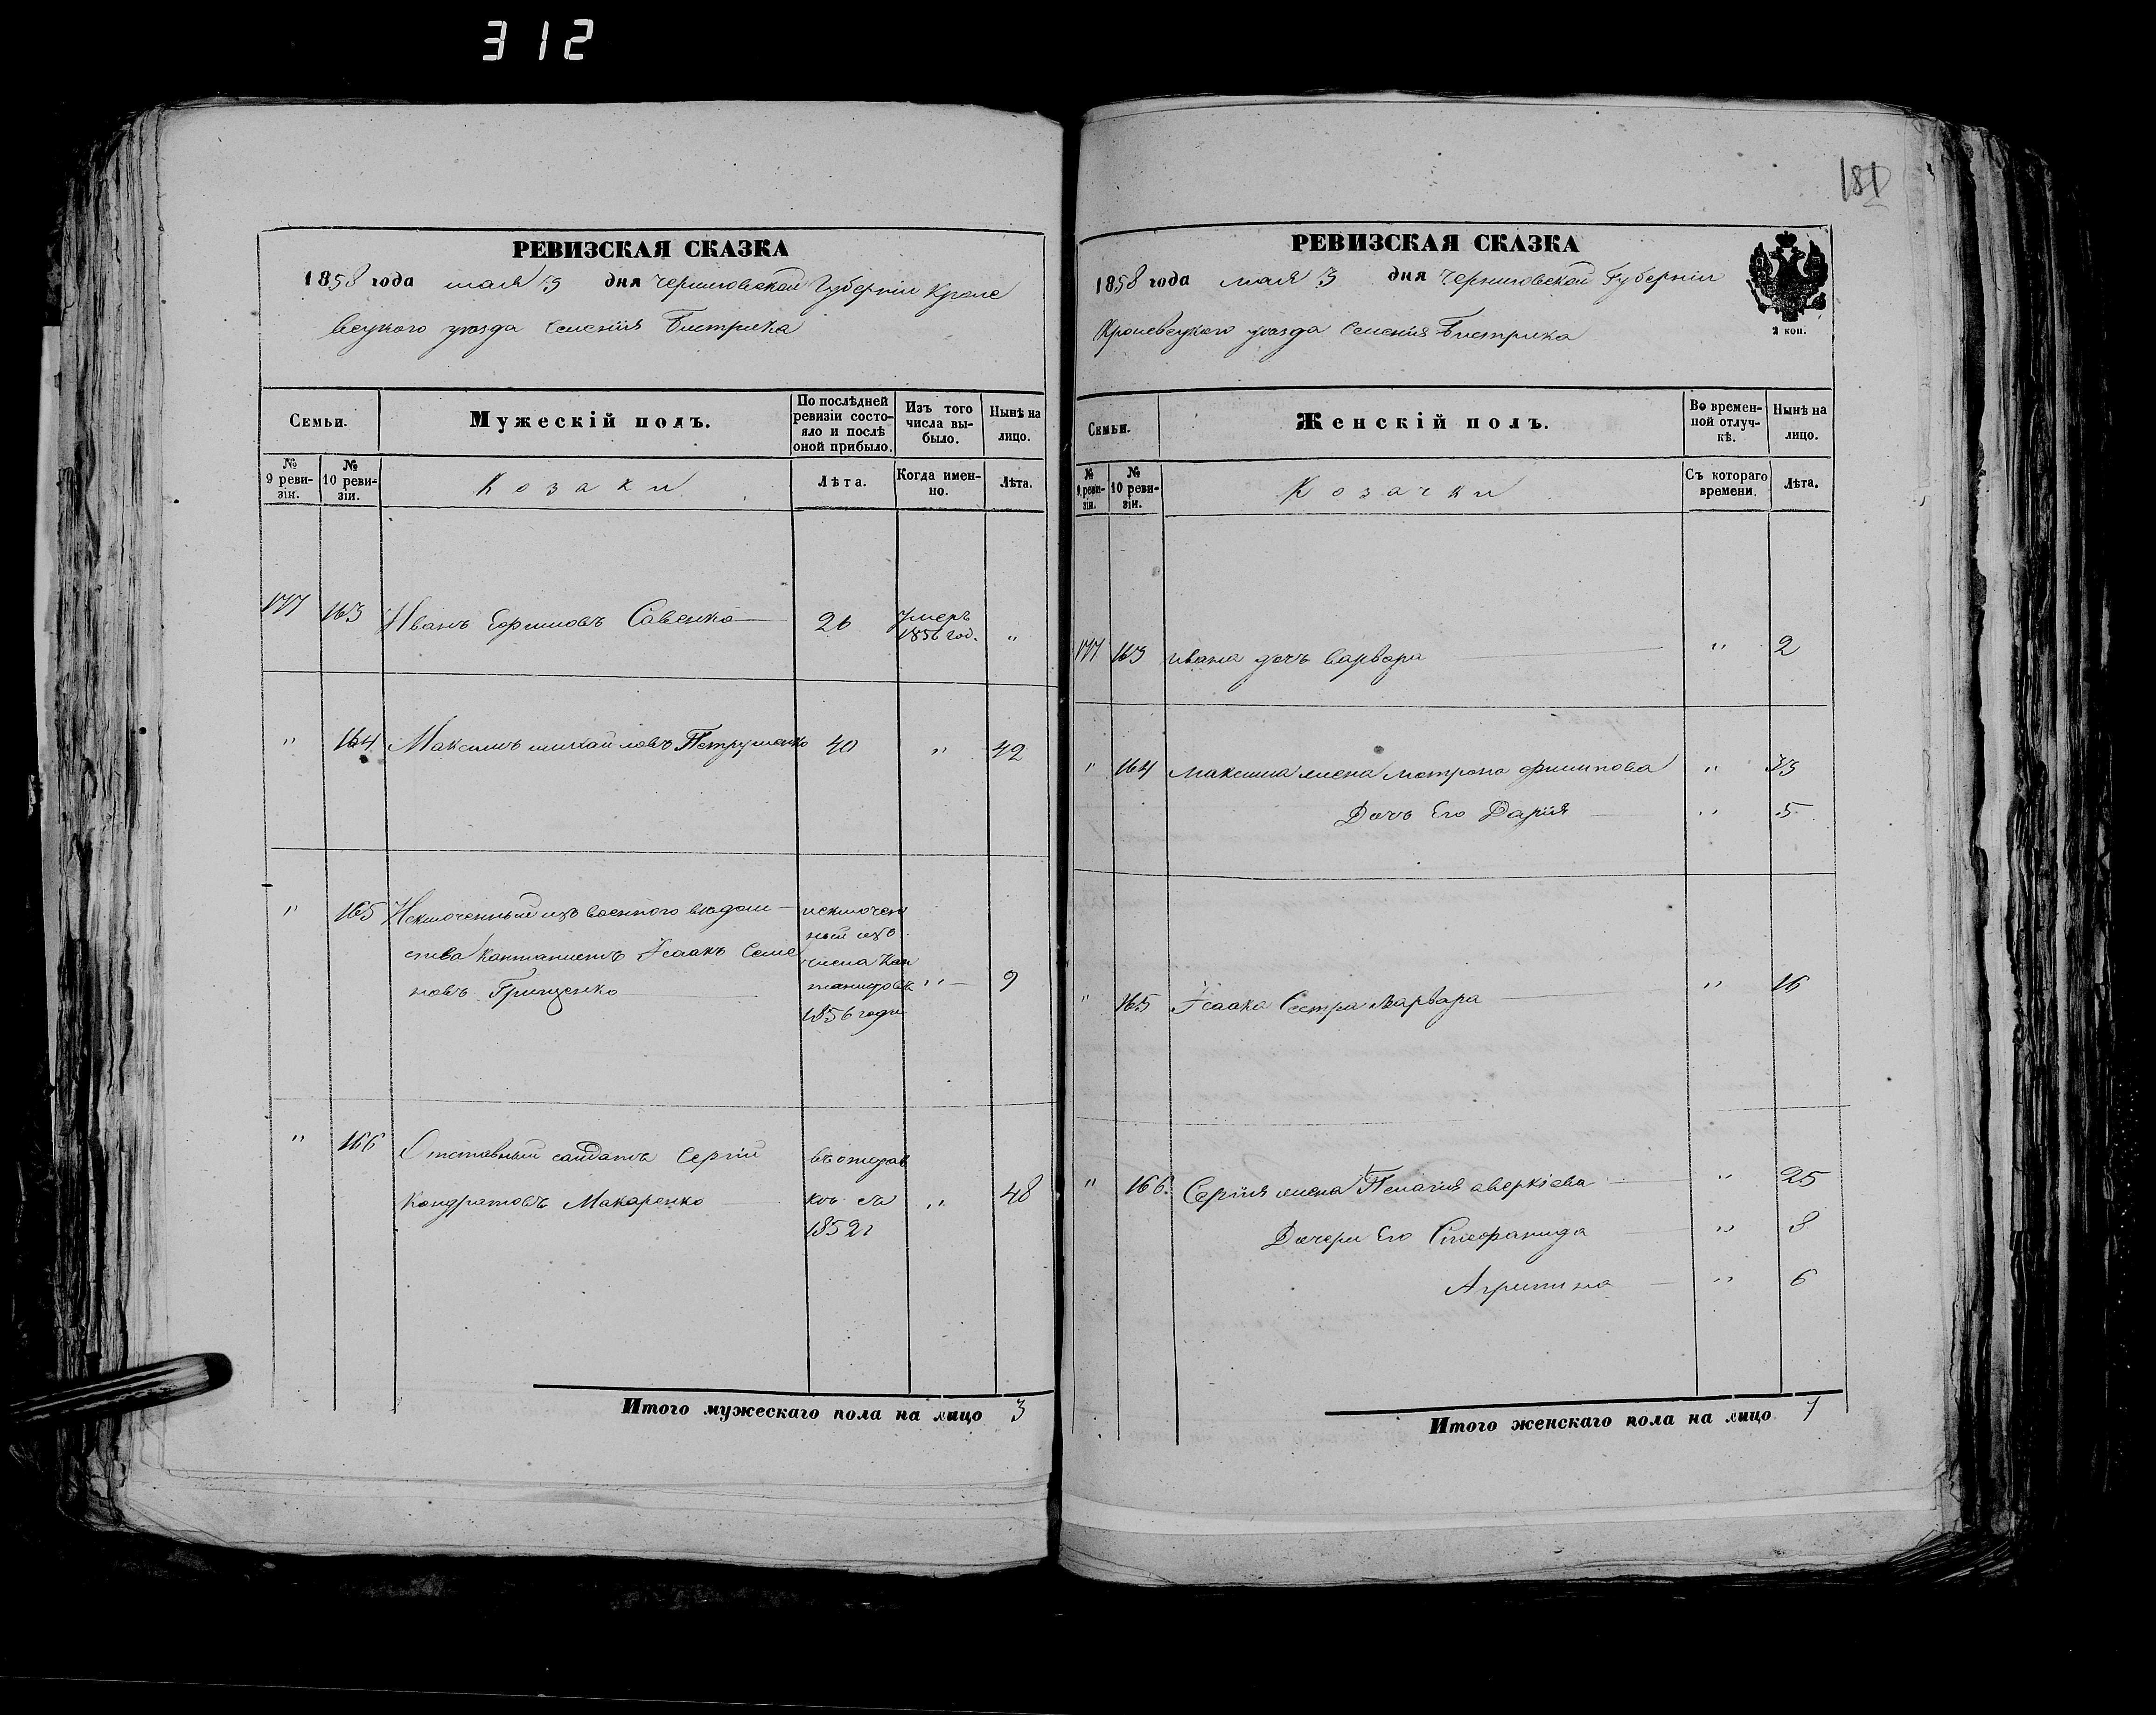 312
181
РЕВИЗСКАЯ СКАЗКА
1858 года мая 3 дня Черниговской Губерніи Кроле
вецкого уезда Селенія Быстрика
Семьи.
Мужескій полъ.
По послѣдней ревизіи состояло и послѣ оной прибыло.
Изъ того числа выбыло.
Нынѣ на лицо.
№ 9 ревизіи.
№ 10 ревизіи.
Козаки
Лѣта.
Когда именно.
Лѣта.
177 163 Иванъ Ефимовъ Савенко 26 Умеръ 1856 год. "
" 164 Максимъ Михайловъ Петрушенко 40 " 42
" 165 Исключенный изъ военного ведом исключен
ства Кантонистъ Исаакъ Семе ный изъ числа Кан
новъ Грищенко тонистовъ " 9
1856 года
" 166 Отставный салдатъ Сергій въ отстав
Кондратовъ Макаренко кѣ съ " 48
1852 г
Итого мужескаго пола на лицо 3
РЕВИЗСКАЯ СКАЗКА
1858 года мая 3 дня Черниговской Губерніи
Кролевецкого уезда Селенія Быстрика
2 коп.
Семьи.
Женскій полъ.
Во временной отлучкѣ.
Нынѣ на лицо.
№ 9 ревизіи.
№ 10 ревизіи.
Козачки
Съ котораго времени.
Лѣта.
177 163 Ивана дочь Варвара " 2
" 164 Максима жена Мотрона Филипова " 33
Дочь Его Дарія " 5
" 165 Исаака Сестра Варвара " 16
" 166. Сергія жена Пелагія Аверкіева " 25
Дочери Его Стефанида " 8
Агрипина " 6
Итого женскаго пола на лицо 7